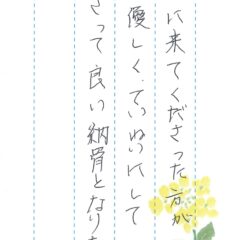 に来てくださった方が
優しく、ていねいにして
さって良い納骨となりま